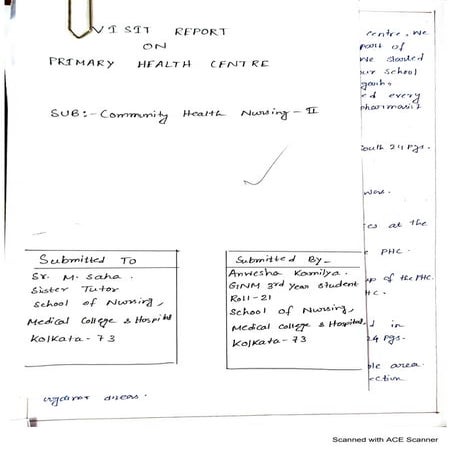 VISIT REPORT
ON
PRIMARY HEALTH CENTRE
SUB:- Community Health Nursing - II
Submitted To
Sr. M. Saha.
Sister Tutor
School of Nursing,
Medical College & Hospital
Kolkata - 73
Submitted By-
Anwesha Kamilya.
GNM 3rd Year Student
Roll - 21
School of Nursing,
Medical College & Hospital,
Kolkata - 73
centre, we
part of
we started
our school
ed every
pharmasist
South 24 Pgs.
es at the
PHC.
up of the PHC.
d in
24 pgs-
ble area
ection
Scanned with ACE Scanner